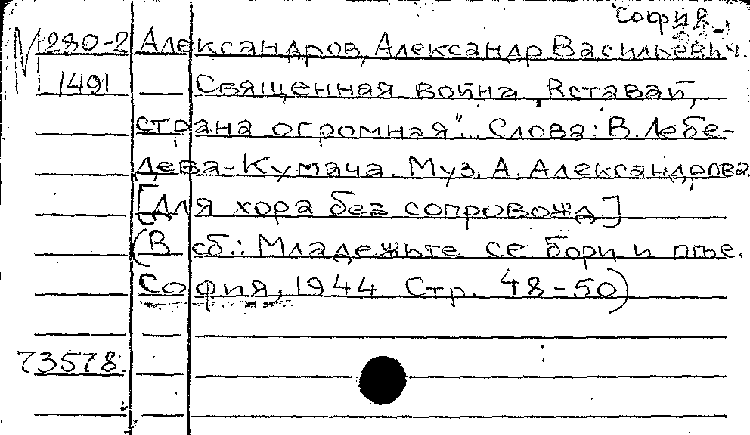 София
М 280-2 Александров, Александр Васильевич.
1491 Священная война „Вставай,
страна огромная". Слова: В. Лебе-
дева-Кумача. Муз. А. Александрова
[Для хора без сопровожд]
(В сб.: Младежьте се бори и пее.
София, 1944 Стр. 48-50)
73578.